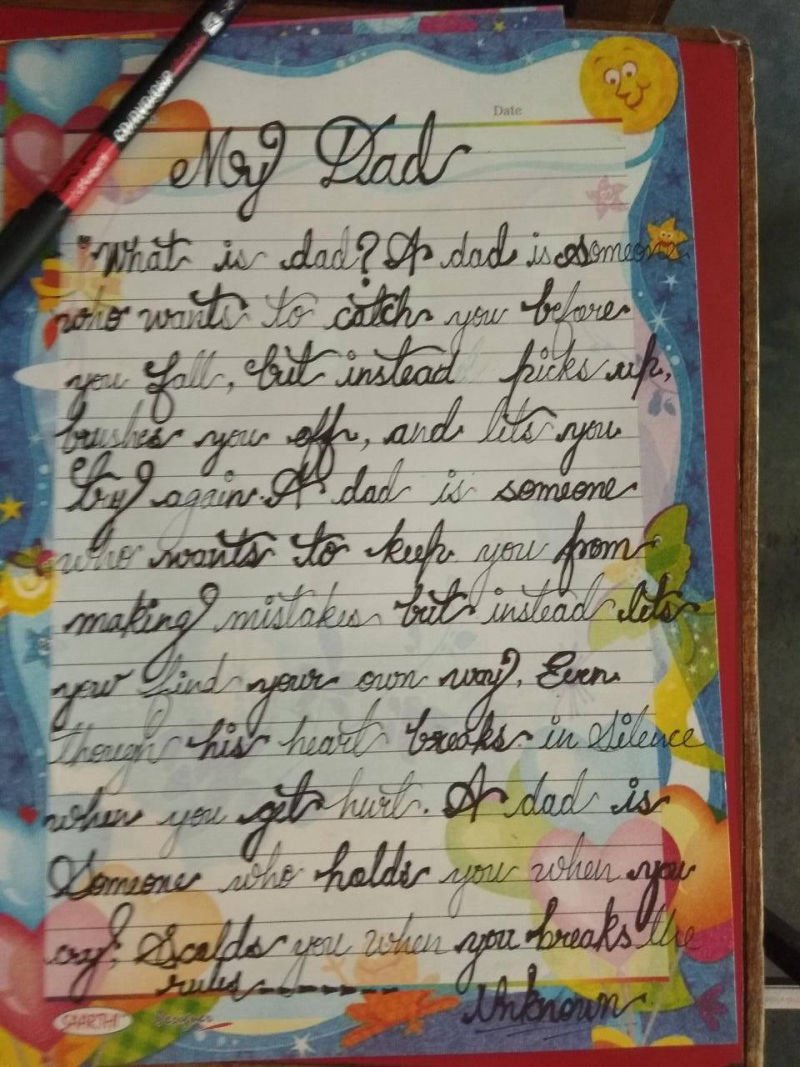 Date
My Dad
"What is dad? A dad is someone
who wants to catch you before
you fall, but instead picks up,
brushes you off, and lets you
try again. A dad is someone
who wants to keep you from
making mistakes but instead lets
you find your own way. Even
though his heart breaks in Silence
when you get hurt. A dad is
Someone who holds you when you
cry, Scolds you when you breaks the
rules--------
Unknown
SAARTHI Designer